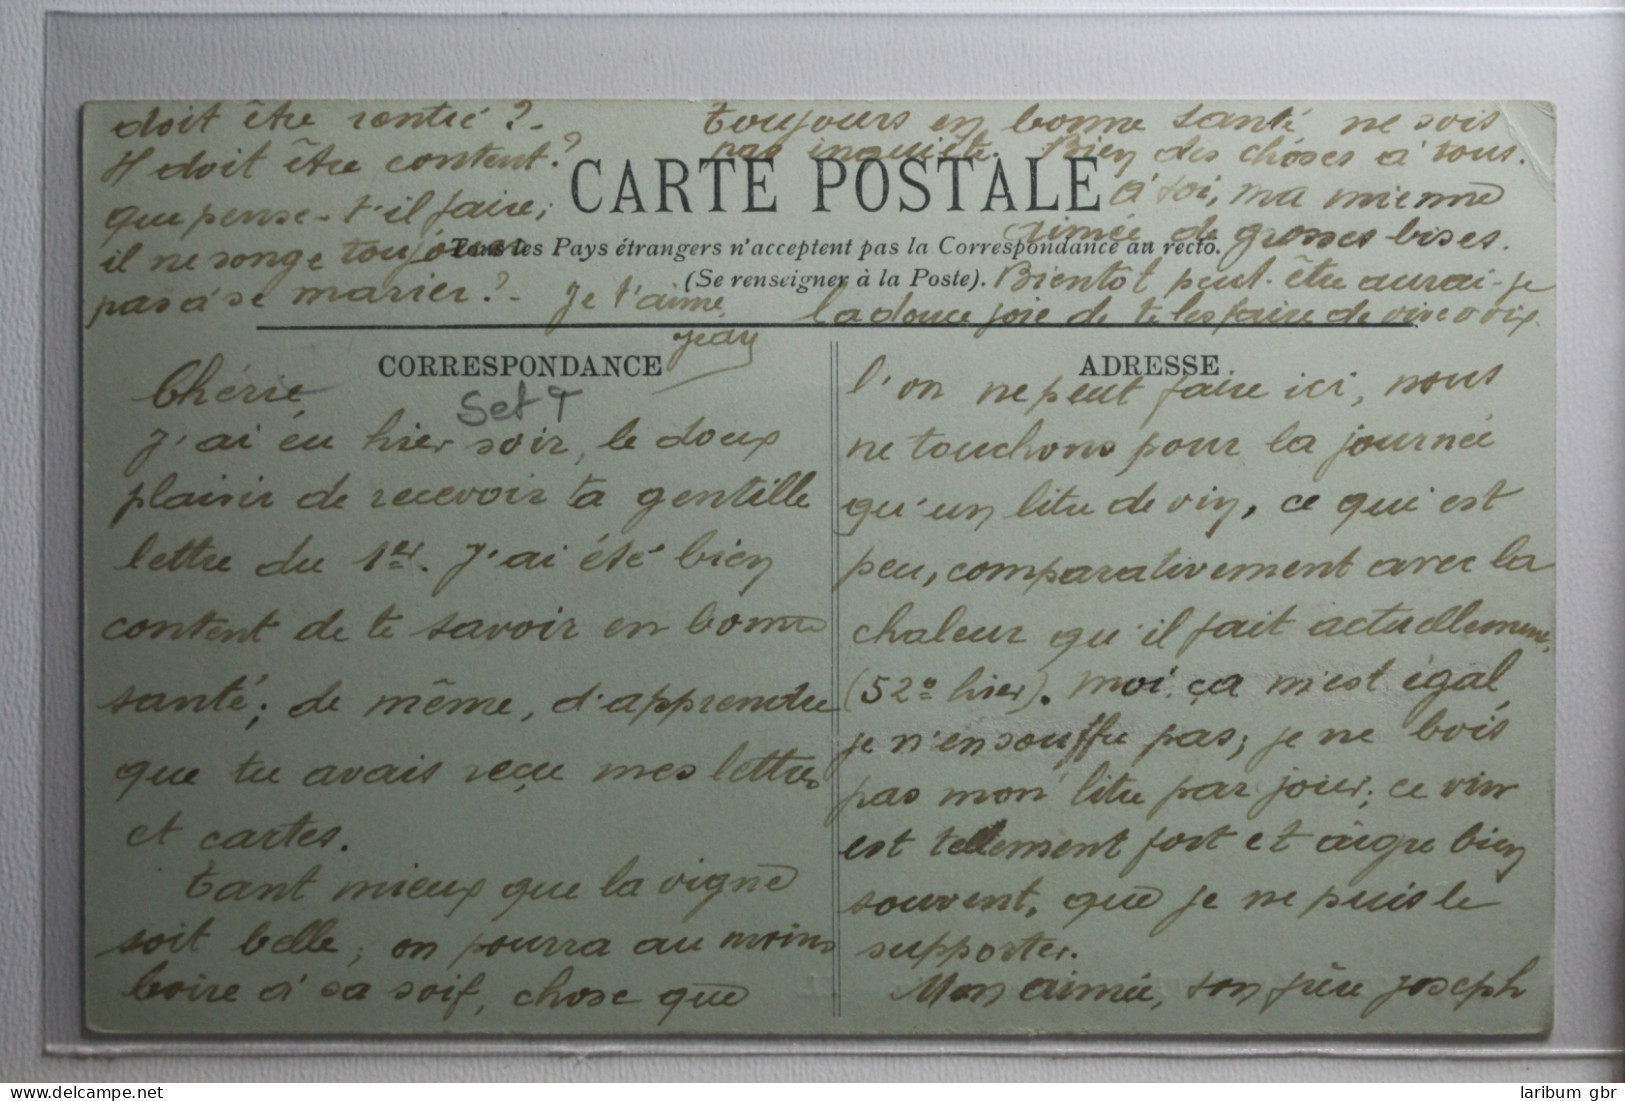 doit être rentré ? -
Il doit être content ?
que pense-t-il faire ;
il ne songe toujours
pas à se marier ? -
Je t'aime
Jean
toujours en bonne santé ne sois
pas inquiète. Bien des choses à tous.
à toi, ma mienne
aimée de grosses bises.
Bientôt peut-être aurai-je
la douce joie de te les faire de vive voix.
CARTE POSTALE
Tous les Pays étrangers n'acceptent pas la Correspondance au recto.
(Se renseigner à la Poste).
CORRESPONDANCE
Set 9
Chérie
J'ai eu hier soir, le doux
plaisir de recevoir ta gentille
lettre du 1er. J'ai été bien
content de te savoir en bonne
santé ; de même, d'apprendre
que tu avais reçu mes lettres
et cartes.
Tant mieux que la vigne
soit belle ; on pourra au moins
boire à sa soif, chose que
ADRESSE
l'on ne peut faire ici, nous
ne touchons pour la journée
qu'un litre de vin, ce qui est
peu, comparativement avec la
chaleur qu'il fait actuellement,
(52° hier). Moi ça m'est égal
je n'en souffre pas ; je ne bois
pas mon litre par jour ; ce vin
est tellement fort et aigre bien
souvent, que je ne puis le
supporter.
Mon aimée, ton frère Joseph
laribum gbr
www.delcampe.net